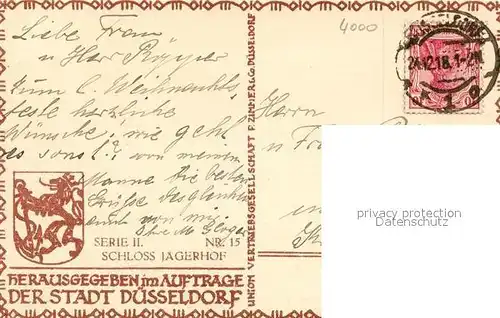 4000
Liebe Frau
u Herr
zum l. Weihnachts
feste herzliche
Wünsche! wie geht
es sonst? von meinem
Manne die besten
Grüsse desgleichen
auch von mir.
24.12.18.1-2N.
Herrn
u Fr
privacy protection
oldthing.com
SERIE II. NR. 15
SCHLOSS JÄGERHOF
HERAUSGEGEBEN im AUFTRAGE
DER STADT DÜSSELDORF
UNION VERTRIEBSGESELLSCHAFT F. ZIMMER & CO DÜSSELDORF